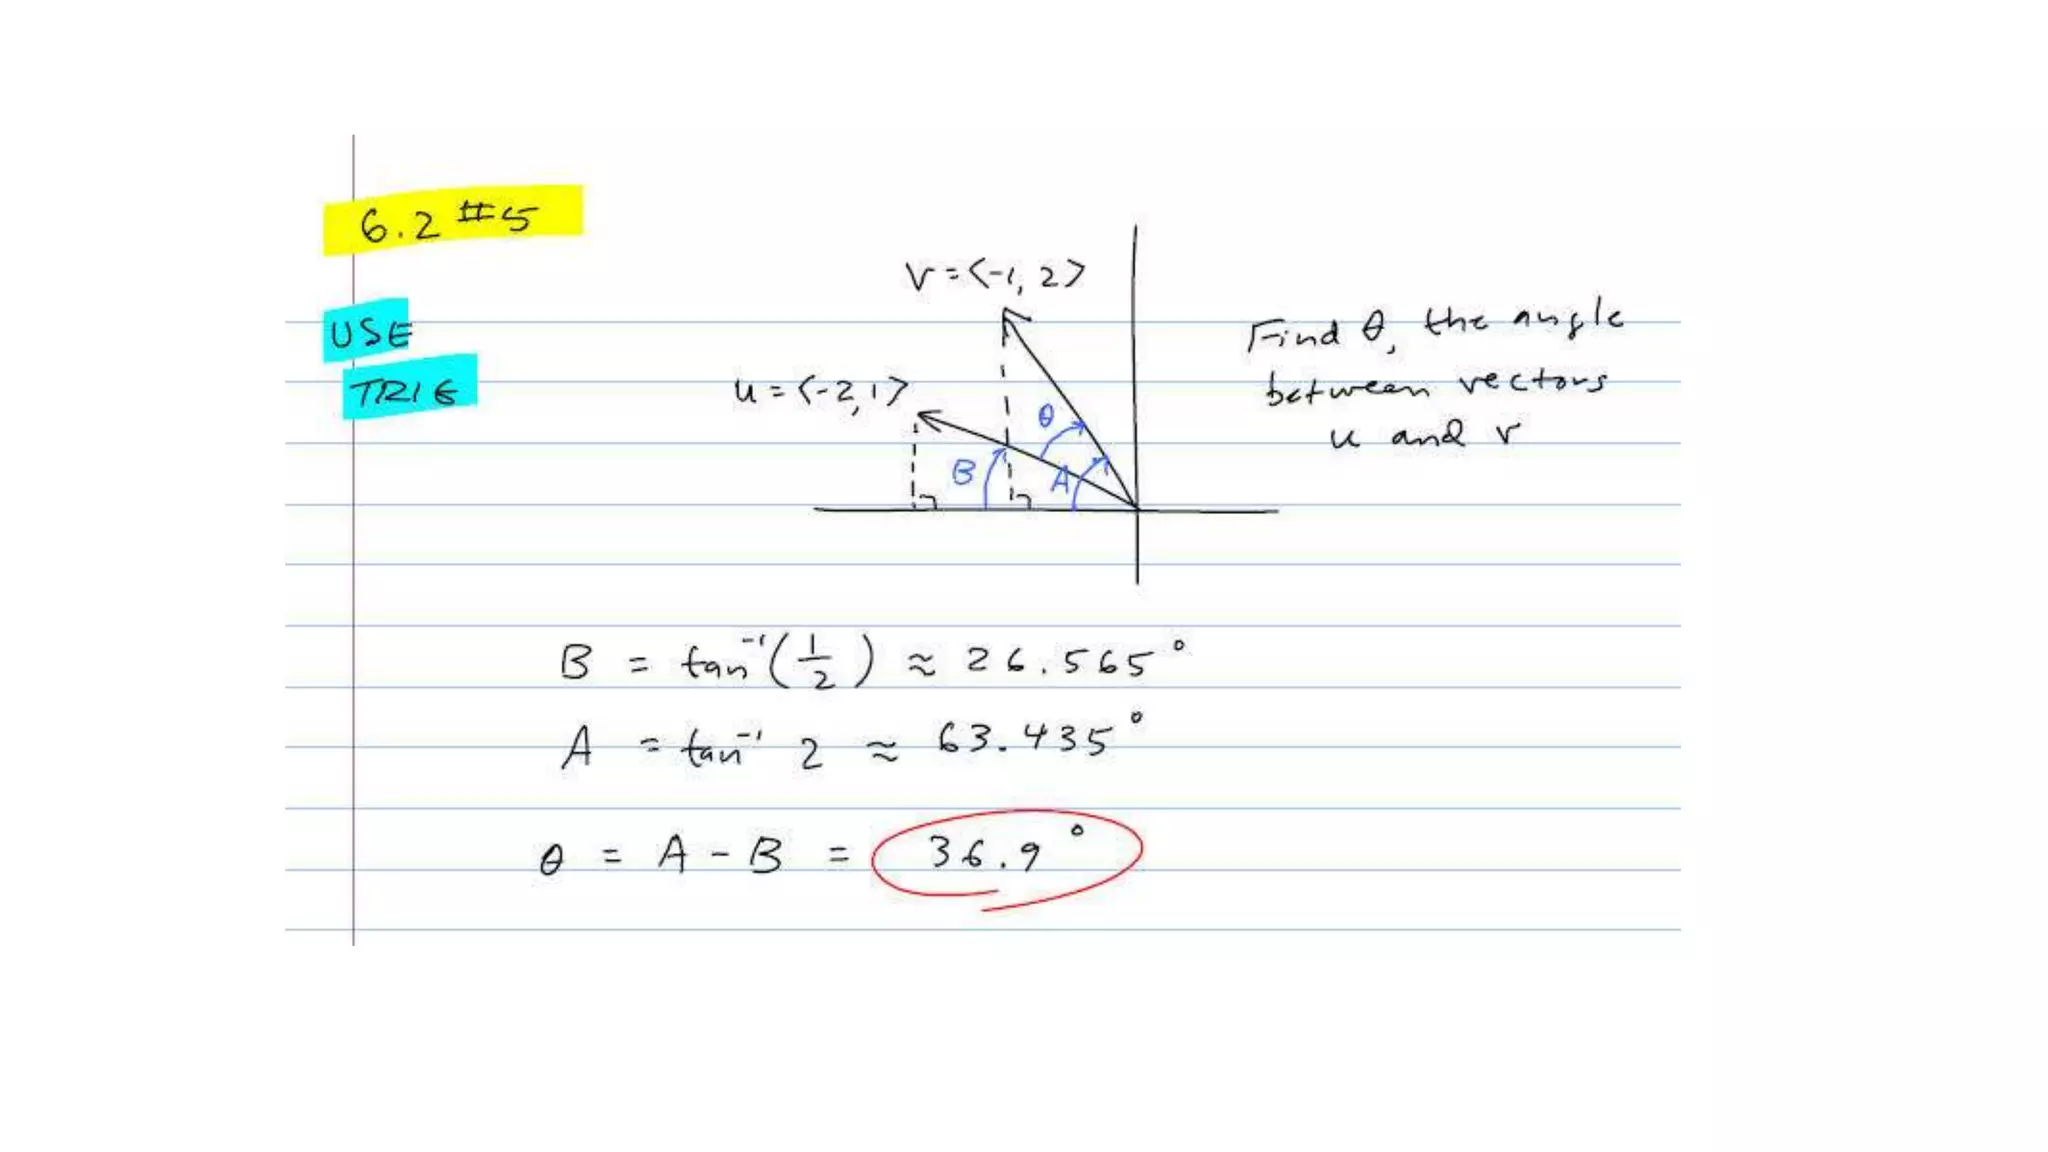 6.2 #5
USE
TRIG
v = <-1, 2>
u = <-2, 1>
θ
B
A
Find θ, the angle
between vectors
u and v
B = tan⁻¹(1/2) ≈ 26.565°
A = tan⁻¹ 2 ≈ 63.435°
θ = A - B = 36.9°